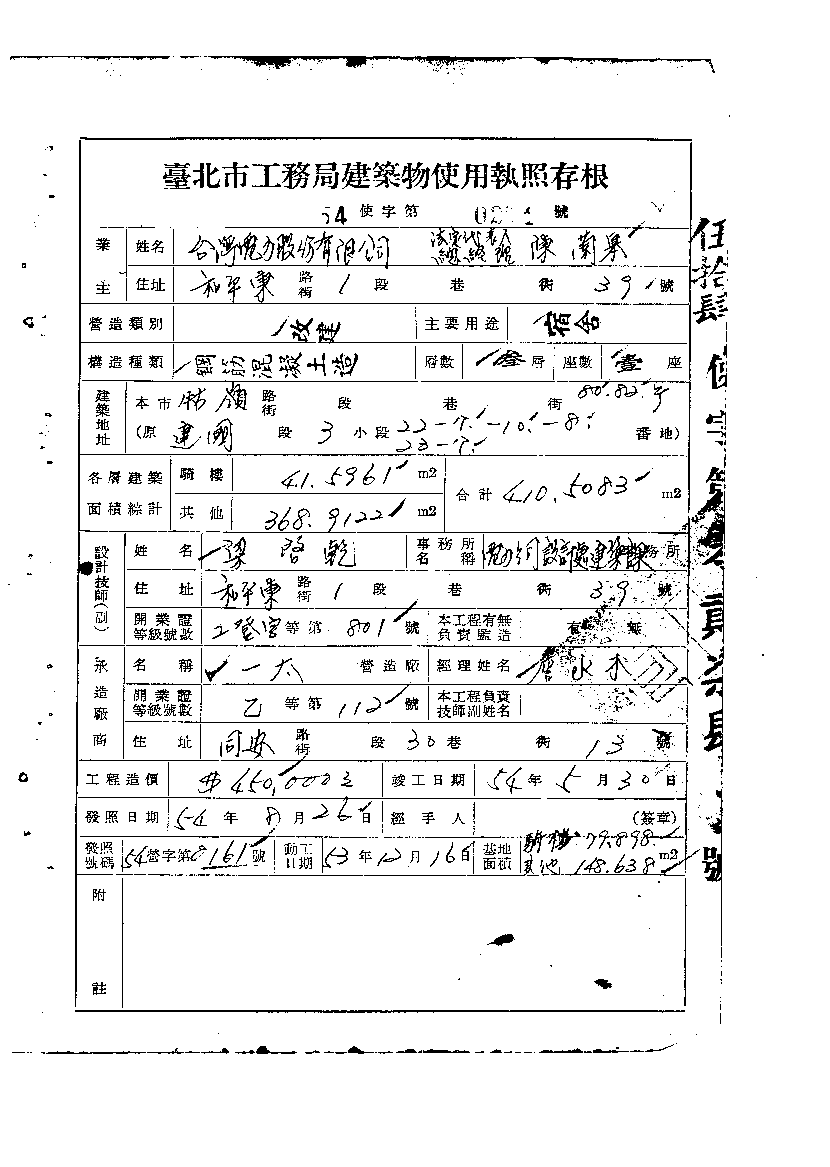 臺北市工務局建築物使用執照存根
54 使字第 號
業主 姓名 台灣電力股份有限公司 法定代表人 總經理 陳蘭皋
住址 和平東 路街 1 段 巷 街 39 號
營造類別 改建 主要用途 宿舍
構造種類 鋼筋混凝土造 層數 叁層 座數 壹座
建築地址 本市 路街 段 巷 街 80.82號
(原 建國 段 3 小段 22-7.-10.-8. 番地)
23-7.
各層建築面積綜計 騎樓 41.5961 m2 合計 410.5083 m2
其他 368.9122 m2
設計技師(副) 姓名 梁啓乾 事務所名稱
住址 和平東 路街 1 段 巷 街 39 號
開業證等級號數 等第 801 號 本工程有無負責監造 有 無
承造廠商 名稱 一大 營造廠 經理姓名 水木
開業證等級號數 乙 等第 112 號 本工程負責技師副姓名
住址 同安 路街 段 30 巷 街 13 號
工程造價 $450,000 竣工日期 54年5月30日
發照日期 54年8月26日 經手人 (簽章)
發照號碼 54營字第0161號 動工日期 53年12月16日 基地面積 騎樓 79.898
其他 148.638 m2
附註
伍拾肆 使字第 號